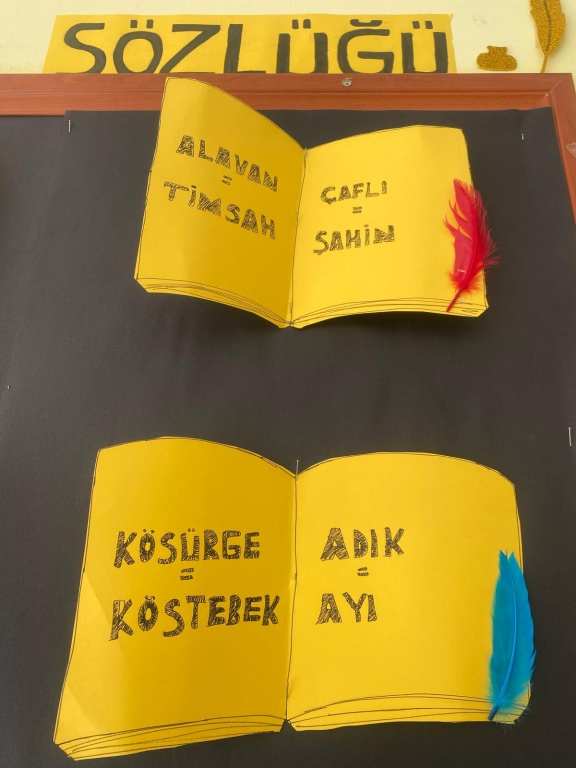 SÖZLÜĞÜ
ALAVAN
=
TİMSAH
ÇAFLI
=
ŞAHİN
KÖSÜRGE
=
KÖSTEBEK
ADIK
=
AYI